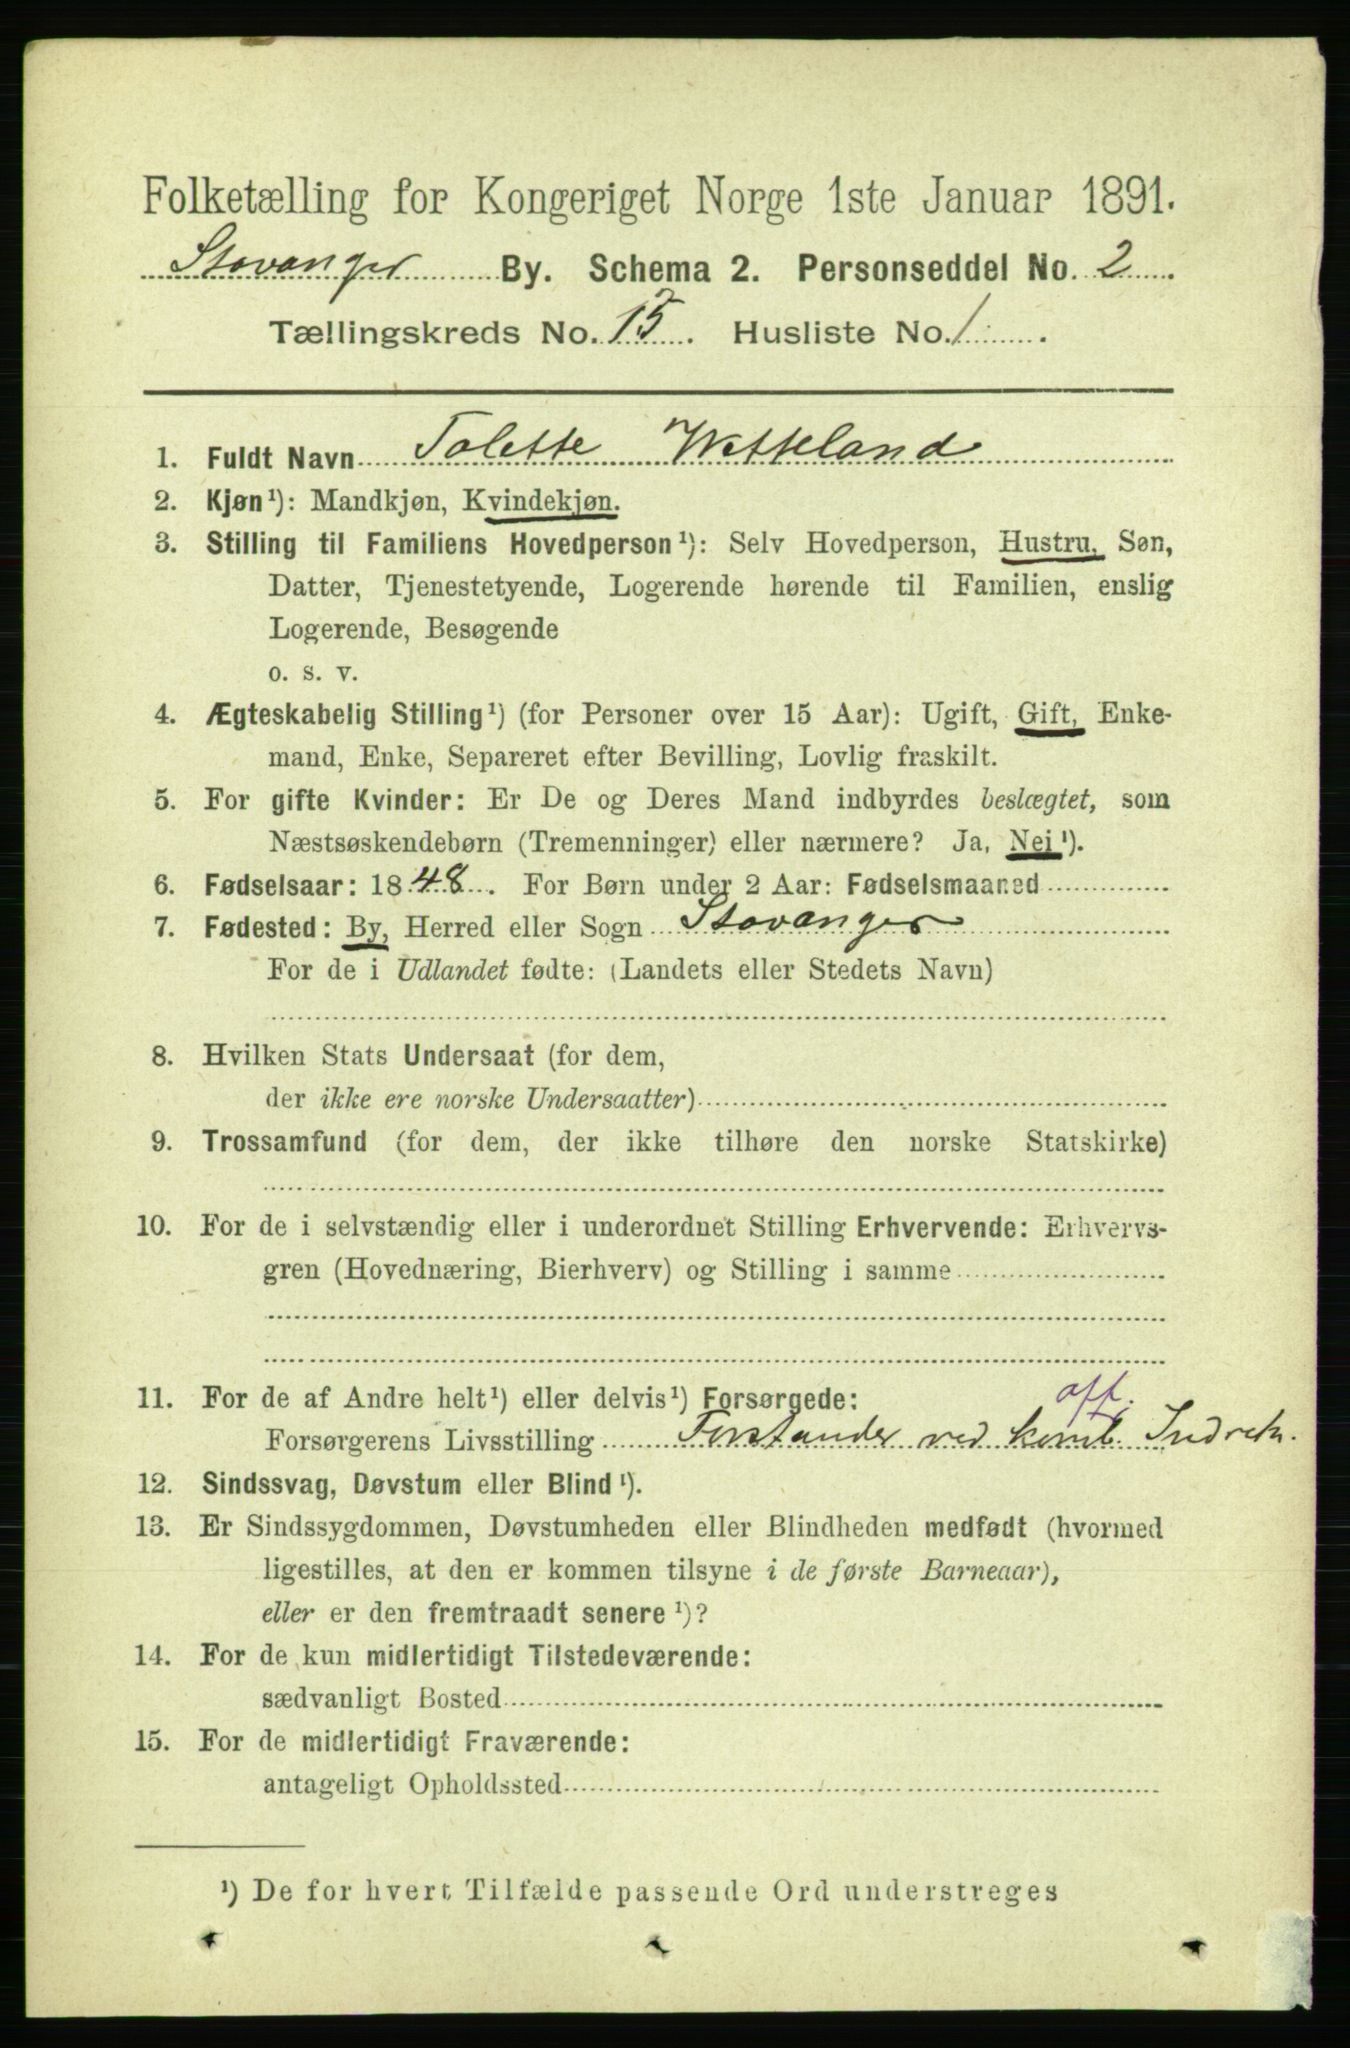 Folketælling for Kongeriget Norge 1ste Januar 1891.
Stavanger By. Schema 2. Personseddel No. 2.
Tællingskreds No. 15. Husliste No. 1.
1. Fuldt Navn Tolette Wetteland
2. Kjøn¹): Mandkjøn, Kvindekjøn.
3. Stilling til Familiens Hovedperson¹): Selv Hovedperson, Hustru, Søn,
Datter, Tjenestetyende, Logerende hørende til Familien, enslig
Logerende, Besøgende
o. s. v.
4. Ægteskabelig Stilling¹) (for Personer over 15 Aar): Ugift, Gift, Enke-
mand, Enke, Separeret efter Bevilling, Lovlig fraskilt.
5. For gifte Kvinder: Er De og Deres Mand indbyrdes beslægtet, som
Næstsøskendebørn (Tremenninger) eller nærmere? Ja, Nei¹).
6. Fødselsaar: 1848. For Børn under 2 Aar: Fødselsmaaned
7. Fødested: By, Herred eller Sogn Stavanger
For de i Udlandet fødte: (Landets eller Stedets Navn)
8. Hvilken Stats Undersaat (for dem,
der ikke ere norske Undersaatter)
9. Trossamfund (for dem, der ikke tilhøre den norske Statskirke)
10. For de i selvstændig eller i underordnet Stilling Erhvervende: Erhvervs-
gren (Hovednæring, Bierhverv) og Stilling i samme
11. For de af Andre helt¹) eller delvis¹) Forsørgede:
off.
Forsørgerens Livsstilling Forstander ved komb. Indretn.
12. Sindssvag, Døvstum eller Blind¹).
13. Er Sindssygdommen, Døvstumheden eller Blindheden medfødt (hvormed
ligestilles, at den er kommen tilsyne i de første Barneaar),
eller er den fremtraadt senere¹)?
14. For de kun midlertidigt Tilstedeværende:
sædvanligt Bosted
15. For de midlertidigt Fraværende:
antageligt Opholdssted
¹) De for hvert Tilfælde passende Ord understreges